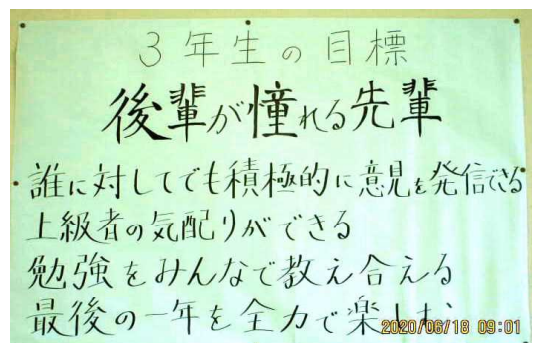 3年生の目標
後輩が憧れる先輩
誰に対してでも積極的に意見を発信できる
上級者の気配りができる
勉強をみんなで教え合える
最後の一年を全力で楽しむ
2020/06/18 09:01